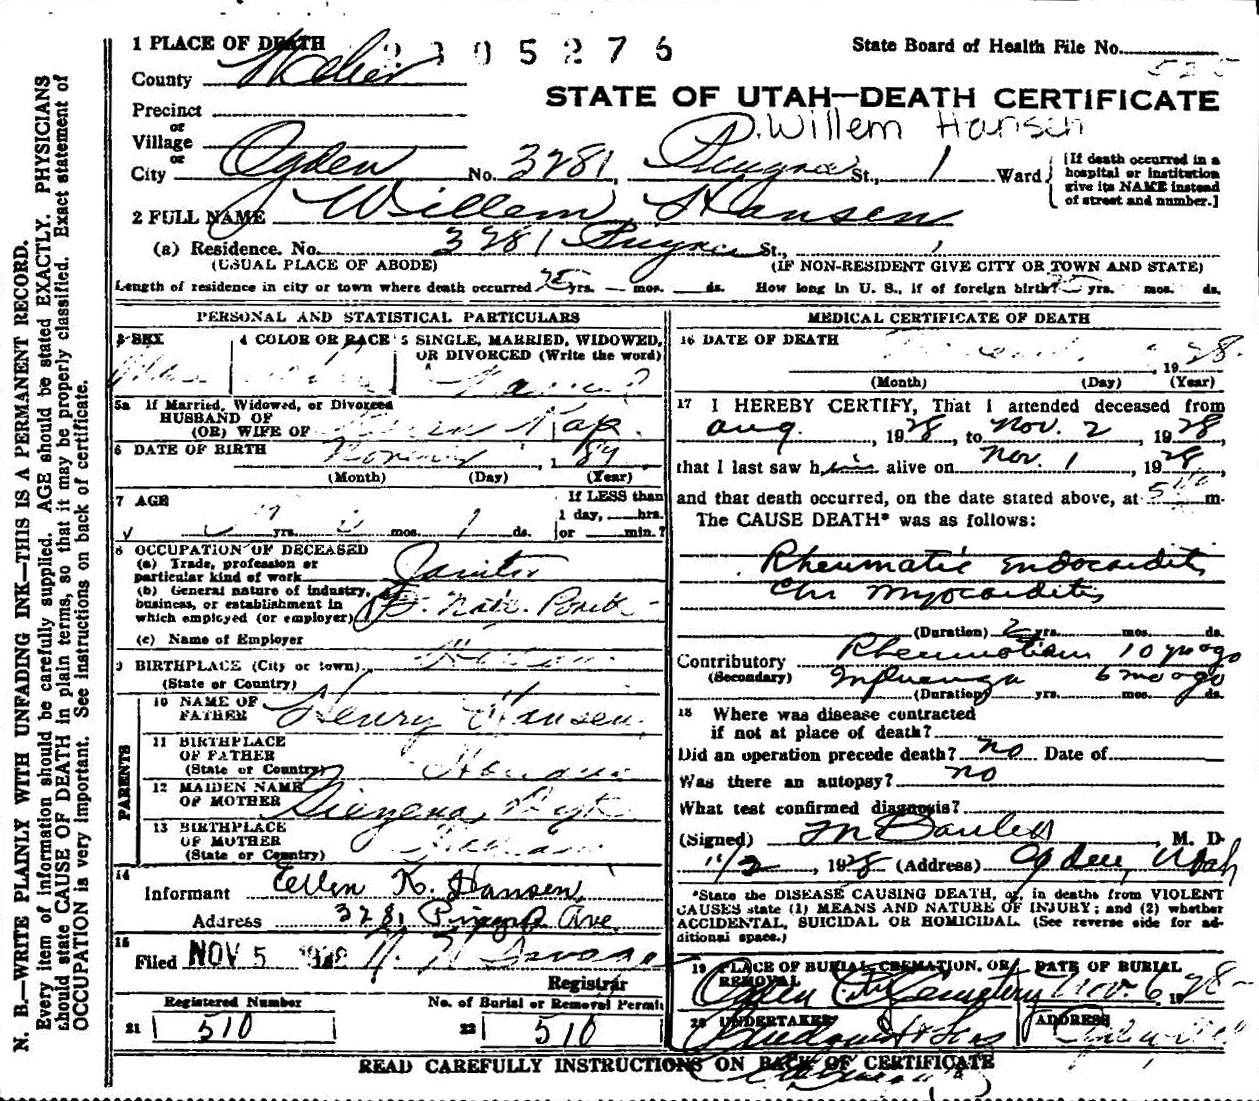 N. B.—WRITE PLAINLY WITH UNFADING INK—THIS IS A PERMANENT RECORD.
Every item of information should be carefully supplied. AGE should be stated EXACTLY. PHYSICIANS
should state CAUSE OF DEATH in plain terms, so that it may be properly classified. Exact statement of
OCCUPATION is very important. See instructions on back of certificate.
1 PLACE OF DEATH
05276
State Board of Health File No.
County Weber
STATE OF UTAH—DEATH CERTIFICATE
Precinct
or
Village
Willem Hansen
or
City Ogden No. 3281, St., 1 Ward
[If death occurred in a
hospital or institution
give its NAME instead
of street and number.]
2 FULL NAME Willem Hansen
(a) Residence. No. 3281 St.,
(USUAL PLACE OF ABODE) (IF NON-RESIDENT GIVE CITY OR TOWN AND STATE)
Length of residence in city or town where death occurred yrs. — mos. ds. How long in U. S., if of foreign birth? yrs. mos. ds.
PERSONAL AND STATISTICAL PARTICULARS
3 SEX
4 COLOR OR RACE
5 SINGLE, MARRIED, WIDOWED,
OR DIVORCED (Write the word)
5a If Married, Widowed, or Divorced
HUSBAND OF
(OR) WIFE OF Kap
6 DATE OF BIRTH
(Month) (Day) (Year)
7 AGE
If LESS than
1 day, hrs.
yrs. mos. ds. or min.?
8 OCCUPATION OF DECEASED
(a) Trade, profession or
particular kind of work Janitor
(b) General nature of industry,
business, or establishment in
which employed (or employer)
(c) Name of Employer
9 BIRTHPLACE (City or town)
(State or Country)
PARENTS
10 NAME OF
FATHER Henry Hansen
11 BIRTHPLACE
OF FATHER
(State or Country)
12 MAIDEN NAME
OF MOTHER
13 BIRTHPLACE
OF MOTHER
(State or Country)
14
Informant Ellen K. Hansen
Address 3281 Ave.
15
Filed NOV 5 1928
Registrar
Registered Number
21 510
No. of Burial or Removal Permit
22 510
MEDICAL CERTIFICATE OF DEATH
16 DATE OF DEATH
1928.
(Month) (Day) (Year)
17 I HEREBY CERTIFY, That I attended deceased from
Aug. , 1928, to Nov. 2 1928
that I last saw him alive on Nov. 1 , 1928
and that death occurred, on the date stated above, at m.
The CAUSE DEATH* was as follows:
Rheumatic Endocarditis
Chr Myocarditis
(Duration) 2 yrs. mos. ds.
Contributory Rheumatism 10 yrs ago
(Secondary) Influenza 6 mo ago
(Duration) yrs. mos. ds.
18 Where was disease contracted
if not at place of death?
Did an operation precede death? no Date of
Was there an autopsy? no
What test confirmed diagnosis?
(Signed) M. D.
11/2 , 1928 (Address) Ogden, Utah
*State the DISEASE CAUSING DEATH, or, in deaths from VIOLENT
CAUSES state (1) MEANS AND NATURE OF INJURY; and (2) whether
ACCIDENTAL, SUICIDAL OR HOMICIDAL. (See reverse side for ad-
ditional space.)
19 PLACE OF BURIAL, CREMATION, OR
REMOVAL
Ogden City Cemetery
DATE OF BURIAL
Nov. 6, 1928
20 UNDERTAKER
ADDRESS
READ CAREFULLY INSTRUCTIONS ON BACK OF CERTIFICATE